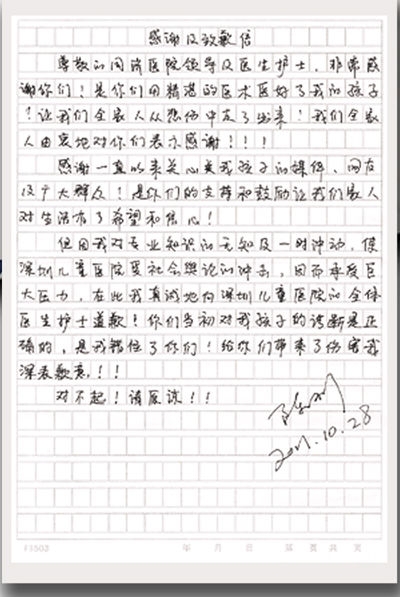 感谢及致歉信
尊敬的同济医院领导及医生护士，非常感
谢你们！是你们用精湛的医术医好了我的孩子
！让我们全家人从悲伤中走了出来！我们全家
人由衷地对你们表示感谢！！！
感谢一直以来关心关我孩子的媒体、网友
及广大群众！是你们的支持和鼓励让我们家人
对生活有了希望和信心！
但因我对专业知识的无知及一时冲动，使
深圳儿童医院受社会舆论的冲击，因而承受巨
大压力，在此我真诚地向深圳儿童医院的全体
医生护士道歉！你们当初对我孩子的诊断是正
确的，是我错怪了你们！给你们带来了伤害我
深表歉意！！
对不起！请原谅！！
2011.10.28
13503 年 月 日 第 页 共 页